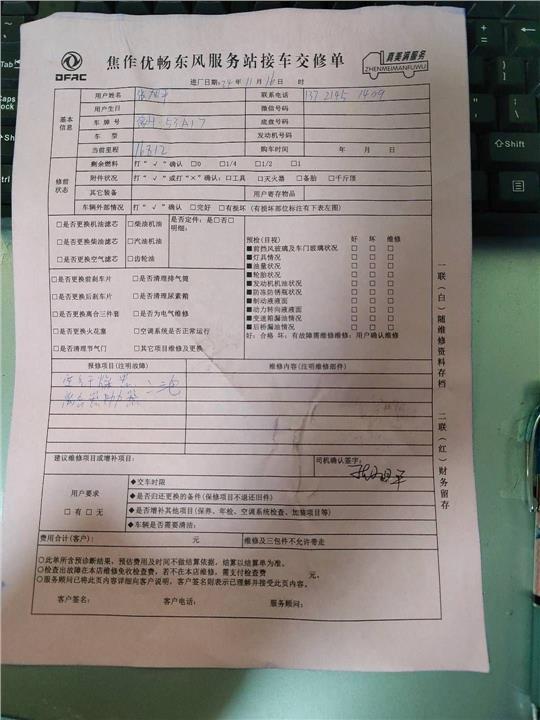 DFAC
焦作优畅东风服务站接车交修单
真美满服务
ZHENMEIMANFUWU
进厂日期:24年11月16日 时
基本信息
用户姓名
联系电话 137 2145 1409
用户生日
微信号码
车牌号
底盘号码
车型
发动机号码
当前里程 16812
购车时间 年 月 日
修前状态
剩余燃料 打"√"确认 □0 □1/4 □1/2 □1
附件状况 打"√"或打"×"确认:□工具 □灭火器 □备胎 □千斤顶
其它装备
用户寄存物品
车辆外部情况 打"√"确认 □完好 □有损坏(有损坏部位标注有下表左图)
□是否更换机油滤芯 □柴油机油 是否定件:是□否□
明细:
□是否更换柴油滤芯 □汽油机油
□是否更换空气滤芯 □齿轮油
□是否更换前刹车片 □是否清理排气筒
□是否更换后刹车片 □是否清理尿素箱
□是否更换离合三件套 □是否为电气维修
□是否更换火花塞 □空调系统是否正常运行
□是否清理节气门 □其它项目维修及更换
预检(目视) 好 坏 维修
■前挡风玻璃及车门玻璃状况 □ □ □
■灯具情况 □ □ □
■油量状况 □ □ □
■轮胎状况 □ □ □
■发动机机油状况 □ □ □
■防冻防锈瓶状况 □ □ □
■制动液液面 □ □ □
■动力转向液液面 □ □ □
■变速箱漏油情况 □ □ □
■后桥漏油情况 □ □ □
好:合格 坏:有故障需维修维修:用户确认维修
报修项目(注明故障)
维修内容(注明维修部件)
建议维修项目或增补项目:
司机确认签字:
用户要求
□有 □无
◆交车时限
◆是否归还更换的备件(保修项目不退还旧件)
◆是否增补其他项目(保养、年检、空调系统检查、加装项目等)
◆车辆是否需要清洁:
费用合计(客户): 元
维修及三包件不允许带走
○此单所含预诊断结果,预估费用及时间不做结算依据,结算以结算单为准。
○检查出故障在本店维修免收检查费,若不在本店维修,需支付检查费 元。
○服务顾问已将此页内容详细向客户说明,客户签名则表示已理解并接受此页内容。
客户签名: 客户电话: 服务顾问:
一联(白)随维修资料存档
二联(红)财务留存
Caps
Lock
Shift